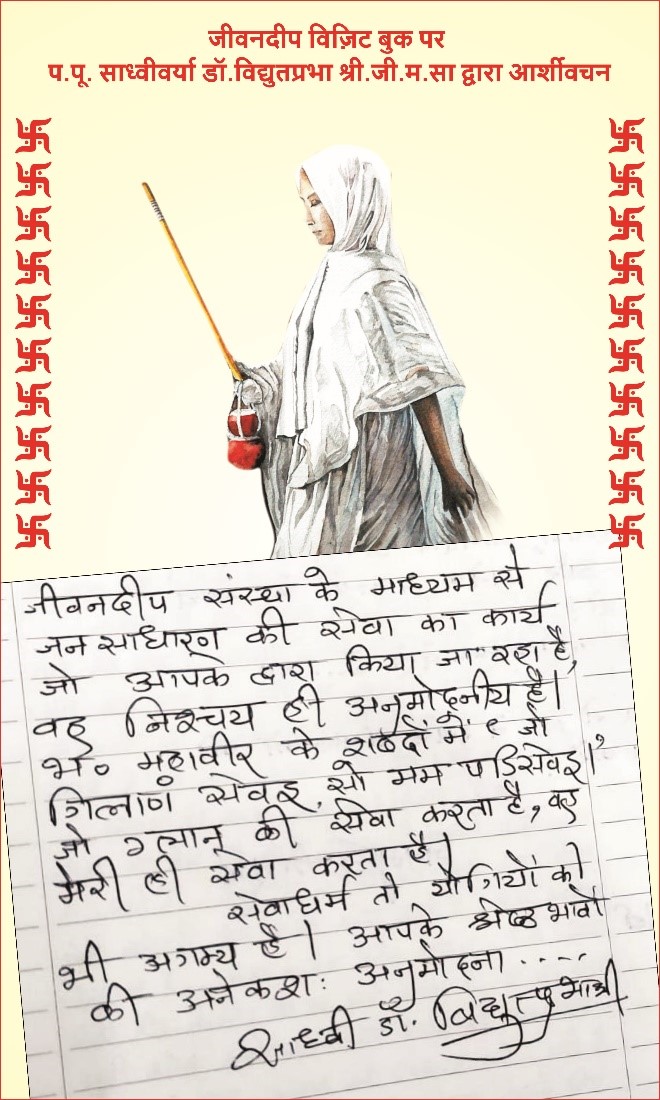 जीवनदीप विज़िट बुक पर
प.पू. साध्वीवर्या डॉ.विद्युतप्रभा श्री.जी.म.सा द्वारा आर्शीवचन
जीवनदीप संस्था के माध्यम से
जन साधारण की सेवा का कार्य
जो आपके द्वारा किया जा रहा है,
वह निश्चय ही अनुमोदनीय है।
भ० महावीर के शब्दों में ‘ जो
गिलाणं सेवइ, सो मम पडिसेवइ।’
जो ग्लान की सेवा करता है, वह
मेरी ही सेवा करता है।
सेवाधर्म तो योगियों को
भी अगम्य है। आपके श्रेष्ठ भावों
की अनेकशः अनुमोदना .....
साध्वी डॉ. विद्युत्प्रभाश्री